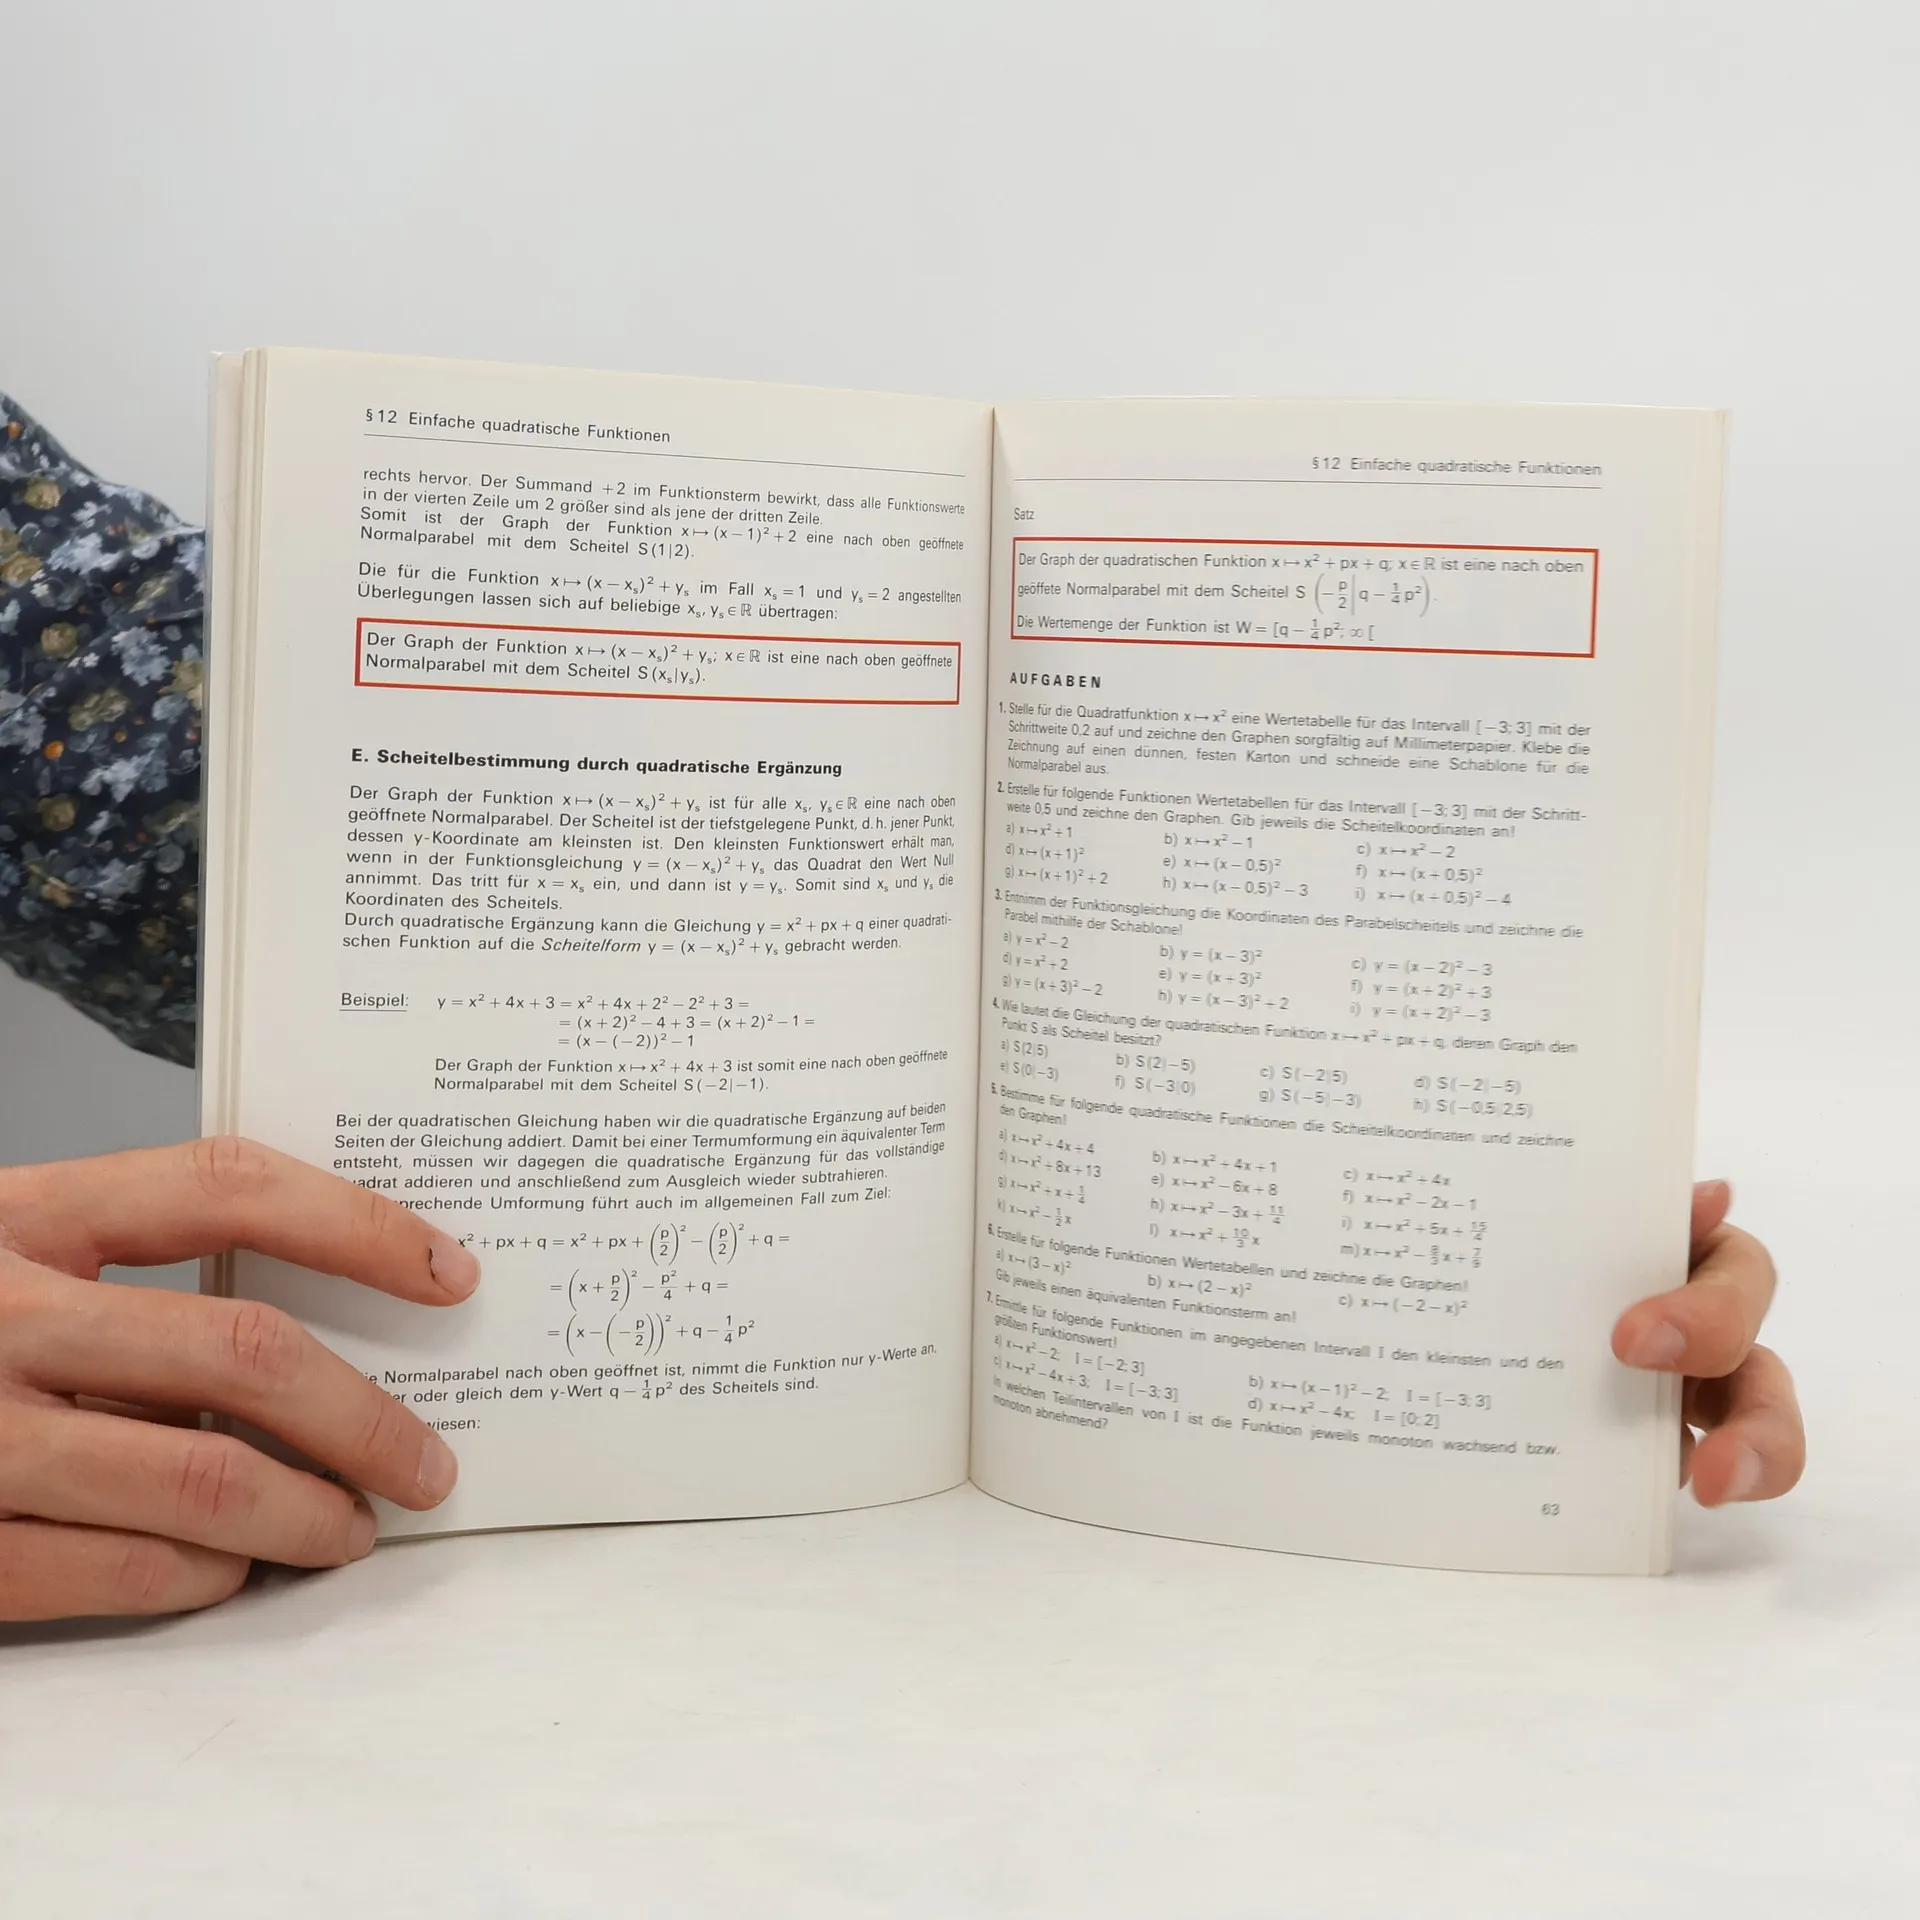 § 12 Einfache quadratische Funktionen
rechts hervor. Der Summand +2 im Funktionsterm bewirkt, dass alle Funktionswerte
in der vierten Zeile um 2 größer sind als jene der dritten Zeile.
Somit ist der Graph der Funktion x ↦ (x − 1)² + 2 eine nach oben geöffnete
Normalparabel mit dem Scheitel S (1|2).
Die für die Funktion x ↦ (x − xₛ)² + yₛ im Fall xₛ = 1 und yₛ = 2 angestellten
Überlegungen lassen sich auf beliebige xₛ, yₛ ∈ ℝ übertragen:
Der Graph der Funktion x ↦ (x − xₛ)² + yₛ; x ∈ ℝ ist eine nach oben geöffnete
Normalparabel mit dem Scheitel S (xₛ|yₛ).
E. Scheitelbestimmung durch quadratische Ergänzung
Der Graph der Funktion x ↦ (x − xₛ)² + yₛ ist für alle xₛ, yₛ ∈ ℝ eine nach oben
geöffnete Normalparabel. Der Scheitel ist der tiefstgelegene Punkt, d. h. jener Punkt,
dessen y-Koordinate am kleinsten ist. Den kleinsten Funktionswert erhält man,
wenn in der Funktionsgleichung y = (x − xₛ)² + yₛ das Quadrat den Wert Null
annimmt. Das tritt für x = xₛ ein, und dann ist y = yₛ. Somit sind xₛ und yₛ die
Koordinaten des Scheitels.
Durch quadratische Ergänzung kann die Gleichung y = x² + px + q einer quadrati-
schen Funktion auf die Scheitelform y = (x − xₛ)² + yₛ gebracht werden.
Beispiel: y = x² + 4x + 3 = x² + 4x + 2² − 2² + 3 =
= (x + 2)² − 4 + 3 = (x + 2)² − 1 =
= (x − (−2))² − 1
Der Graph der Funktion x ↦ x² + 4x + 3 ist somit eine nach oben geöffnete
Normalparabel mit dem Scheitel S (−2|−1).
Bei der quadratischen Gleichung haben wir die quadratische Ergänzung auf beiden
Seiten der Gleichung addiert. Damit bei einer Termumformung ein äquivalenter Term
entsteht, müssen wir dagegen die quadratische Ergänzung für das vollständige
adrat addieren und anschließend zum Ausgleich wieder subtrahieren.
prechende Umformung führt auch im allgemeinen Fall zum Ziel:
x² + px + q = x² + px + (p/2)² − (p/2)² + q =
= (x + p/2)² − p²/4 + q =
= (x − (−p/2))² + q − 1/4 p²
ie Normalparabel nach oben geöffnet ist, nimmt die Funktion nur y-Werte an,
er oder gleich dem y-Wert q − 1/4 p² des Scheitels sind.
iesen:
§ 12 Einfache quadratische Funktionen
Satz
Der Graph der quadratischen Funktion x ↦ x² + px + q; x ∈ ℝ ist eine nach oben
geöffete Normalparabel mit dem Scheitel S (−p/2 | q − 1/4 p²).
Die Wertemenge der Funktion ist W = [q − 1/4 p²; ∞ [
AUFGABEN
1. Stelle für die Quadratfunktion x ↦ x² eine Wertetabelle für das Intervall [−3; 3] mit der
Schrittweite 0,2 auf und zeichne den Graphen sorgfältig auf Millimeterpapier. Klebe die
Zeichnung auf einen dünnen, festen Karton und schneide eine Schablone für die
Normalparabel aus.
2. Erstelle für folgende Funktionen Wertetabellen für das Intervall [−3; 3] mit der Schritt-
weite 0,5 und zeichne den Graphen. Gib jeweils die Scheitelkoordinaten an!
a) x ↦ x² + 1 b) x ↦ x² − 1 c) x ↦ x² − 2
d) x ↦ (x + 1)² e) x ↦ (x − 0,5)² f) x ↦ (x + 0,5)²
g) x ↦ (x + 1)² + 2 h) x ↦ (x − 0,5)² − 3 i) x ↦ (x + 0,5)² − 4
3. Entnimm der Funktionsgleichung die Koordinaten des Parabelscheitels und zeichne die
Parabel mithilfe der Schablone!
a) y = x² − 2 b) y = (x − 3)² c) y = (x − 2)² − 3
d) y = x² + 2 e) y = (x + 3)² f) y = (x + 2)² + 3
g) y = (x + 3)² − 2 h) y = (x − 3)² + 2 i) y = (x + 2)² − 3
4. Wie lautet die Gleichung der quadratischen Funktion x ↦ x² + px + q, deren Graph den
Punkt S als Scheitel besitzt?
a) S(2|5) b) S(2|−5) c) S(−2|5) d) S(−2|−5)
e) S(0|−3) f) S(−3|0) g) S(−5|−3) h) S(−0,5|2,5)
5. Bestimme für folgende quadratische Funktionen die Scheitelkoordinaten und zeichne
den Graphen!
a) x ↦ x² + 4x + 4 b) x ↦ x² + 4x + 1 c) x ↦ x² + 4x
d) x ↦ x² + 8x + 13 e) x ↦ x² − 6x + 8 f) x ↦ x² − 2x − 1
g) x ↦ x² + x + 1/4 h) x ↦ x² − 3x + 11/4 i) x ↦ x² + 5x + 15/4
k) x ↦ x² − 1/2 x l) x ↦ x² + 10/3 x m) x ↦ x² − 8/3 x + 7/9
6. Erstelle für folgende Funktionen Wertetabellen und zeichne die Graphen!
a) x ↦ (3 − x)² b) x ↦ (2 − x)² c) x ↦ (−2 − x)²
Gib jeweils einen äquivalenten Funktionsterm an!
7. Ermittle für folgende Funktionen im angegebenen Intervall I den kleinsten und den
größten Funktionswert!
a) x ↦ x² − 2; I = [−2; 3] b) x ↦ (x − 1)² − 2; I = [−3; 3]
c) x ↦ x² − 4x + 3; I = [−3; 3] d) x ↦ x² − 4x; I = [0; 2]
In welchen Teilintervallen von I ist die Funktion jeweils monoton wachsend bzw.
monoton abnehmend?
63